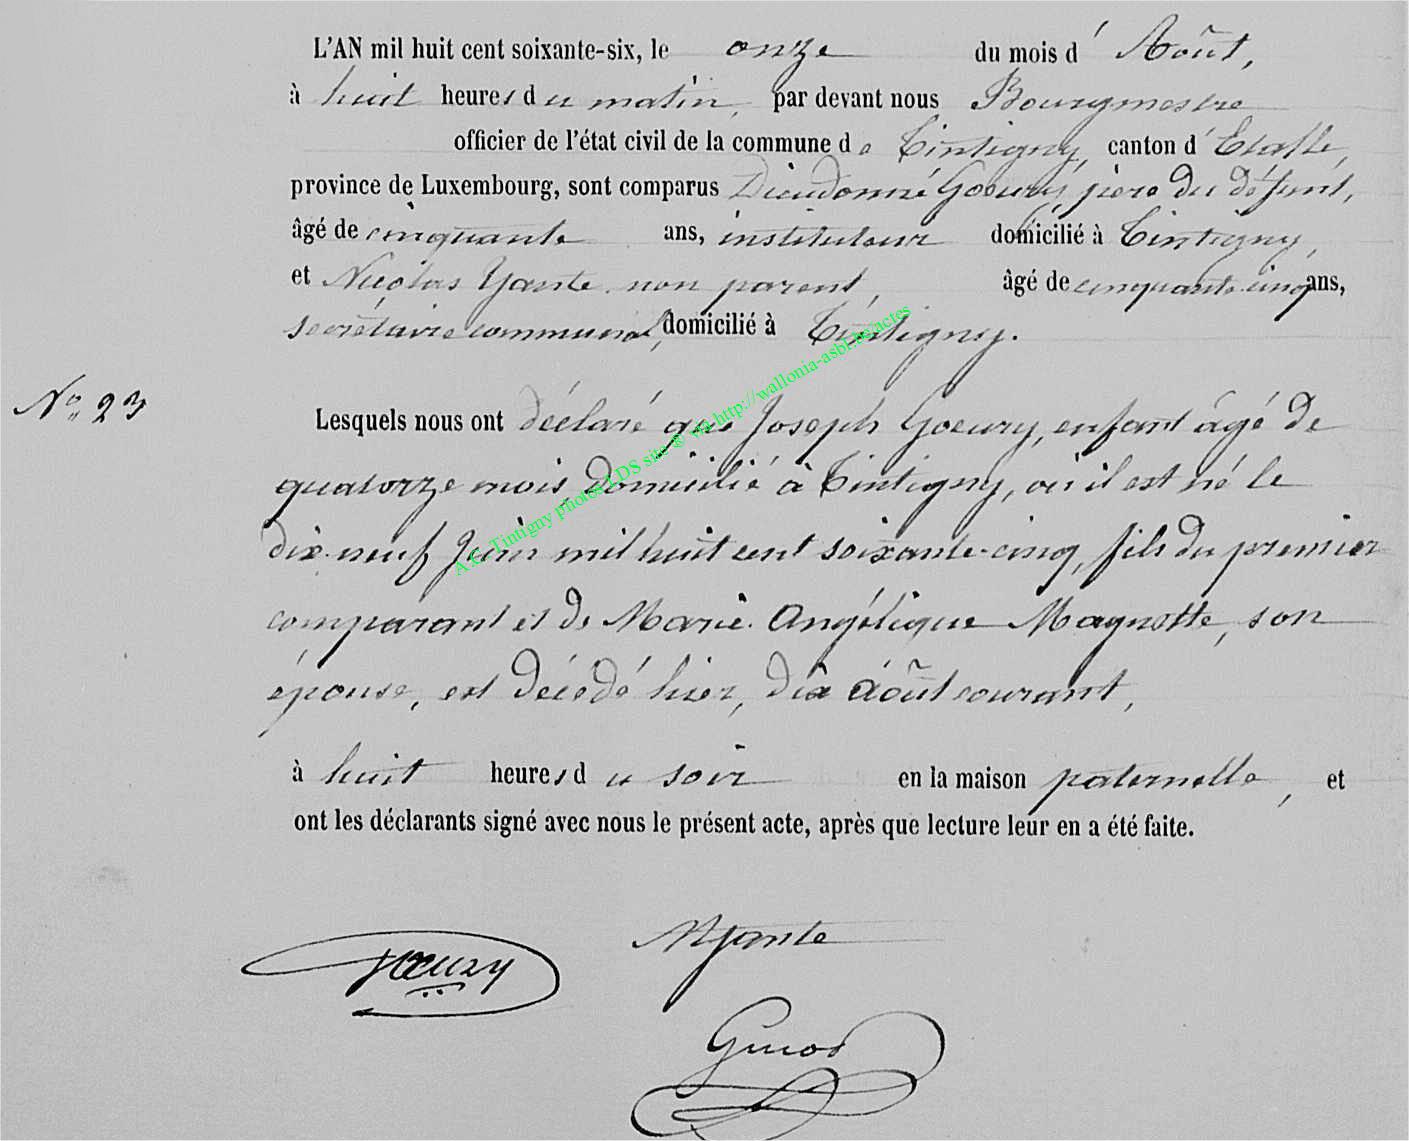 L'AN mil huit cent soixante-six, le onze du mois d' Août,
à huit heures du matin, par devant nous Bourgmestre
officier de l'état civil de la commune de Tintigny, canton d' Etalle,
province de Luxembourg, sont comparus Dieudonné Goeury, père du défunt,
âgé de cinquante ans, instituteur domicilié à Tintigny,
et Nicolas Yante non parent, âgé de cinquante-cinq ans,
secrétaire communal, domicilié à Tintigny.
No 23
Lesquels nous ont déclaré que Joseph Goeury, enfant âgé de
quatorze mois, domicilié à Tintigny, où il est né le
dix-neuf Juin mil huit cent soixante-cinq, fils du premier
comparant et de Marie-Angélique Magnette, son
épouse, est décédé hier, dix août courant,
à huit heures du soir en la maison paternelle, et
ont les déclarants signé avec nous le présent acte, après que lecture leur en a été faite.
Goeury
NYante
A.C. Tintigny photos LDS site © via http://wallonia-asbl.be/actes